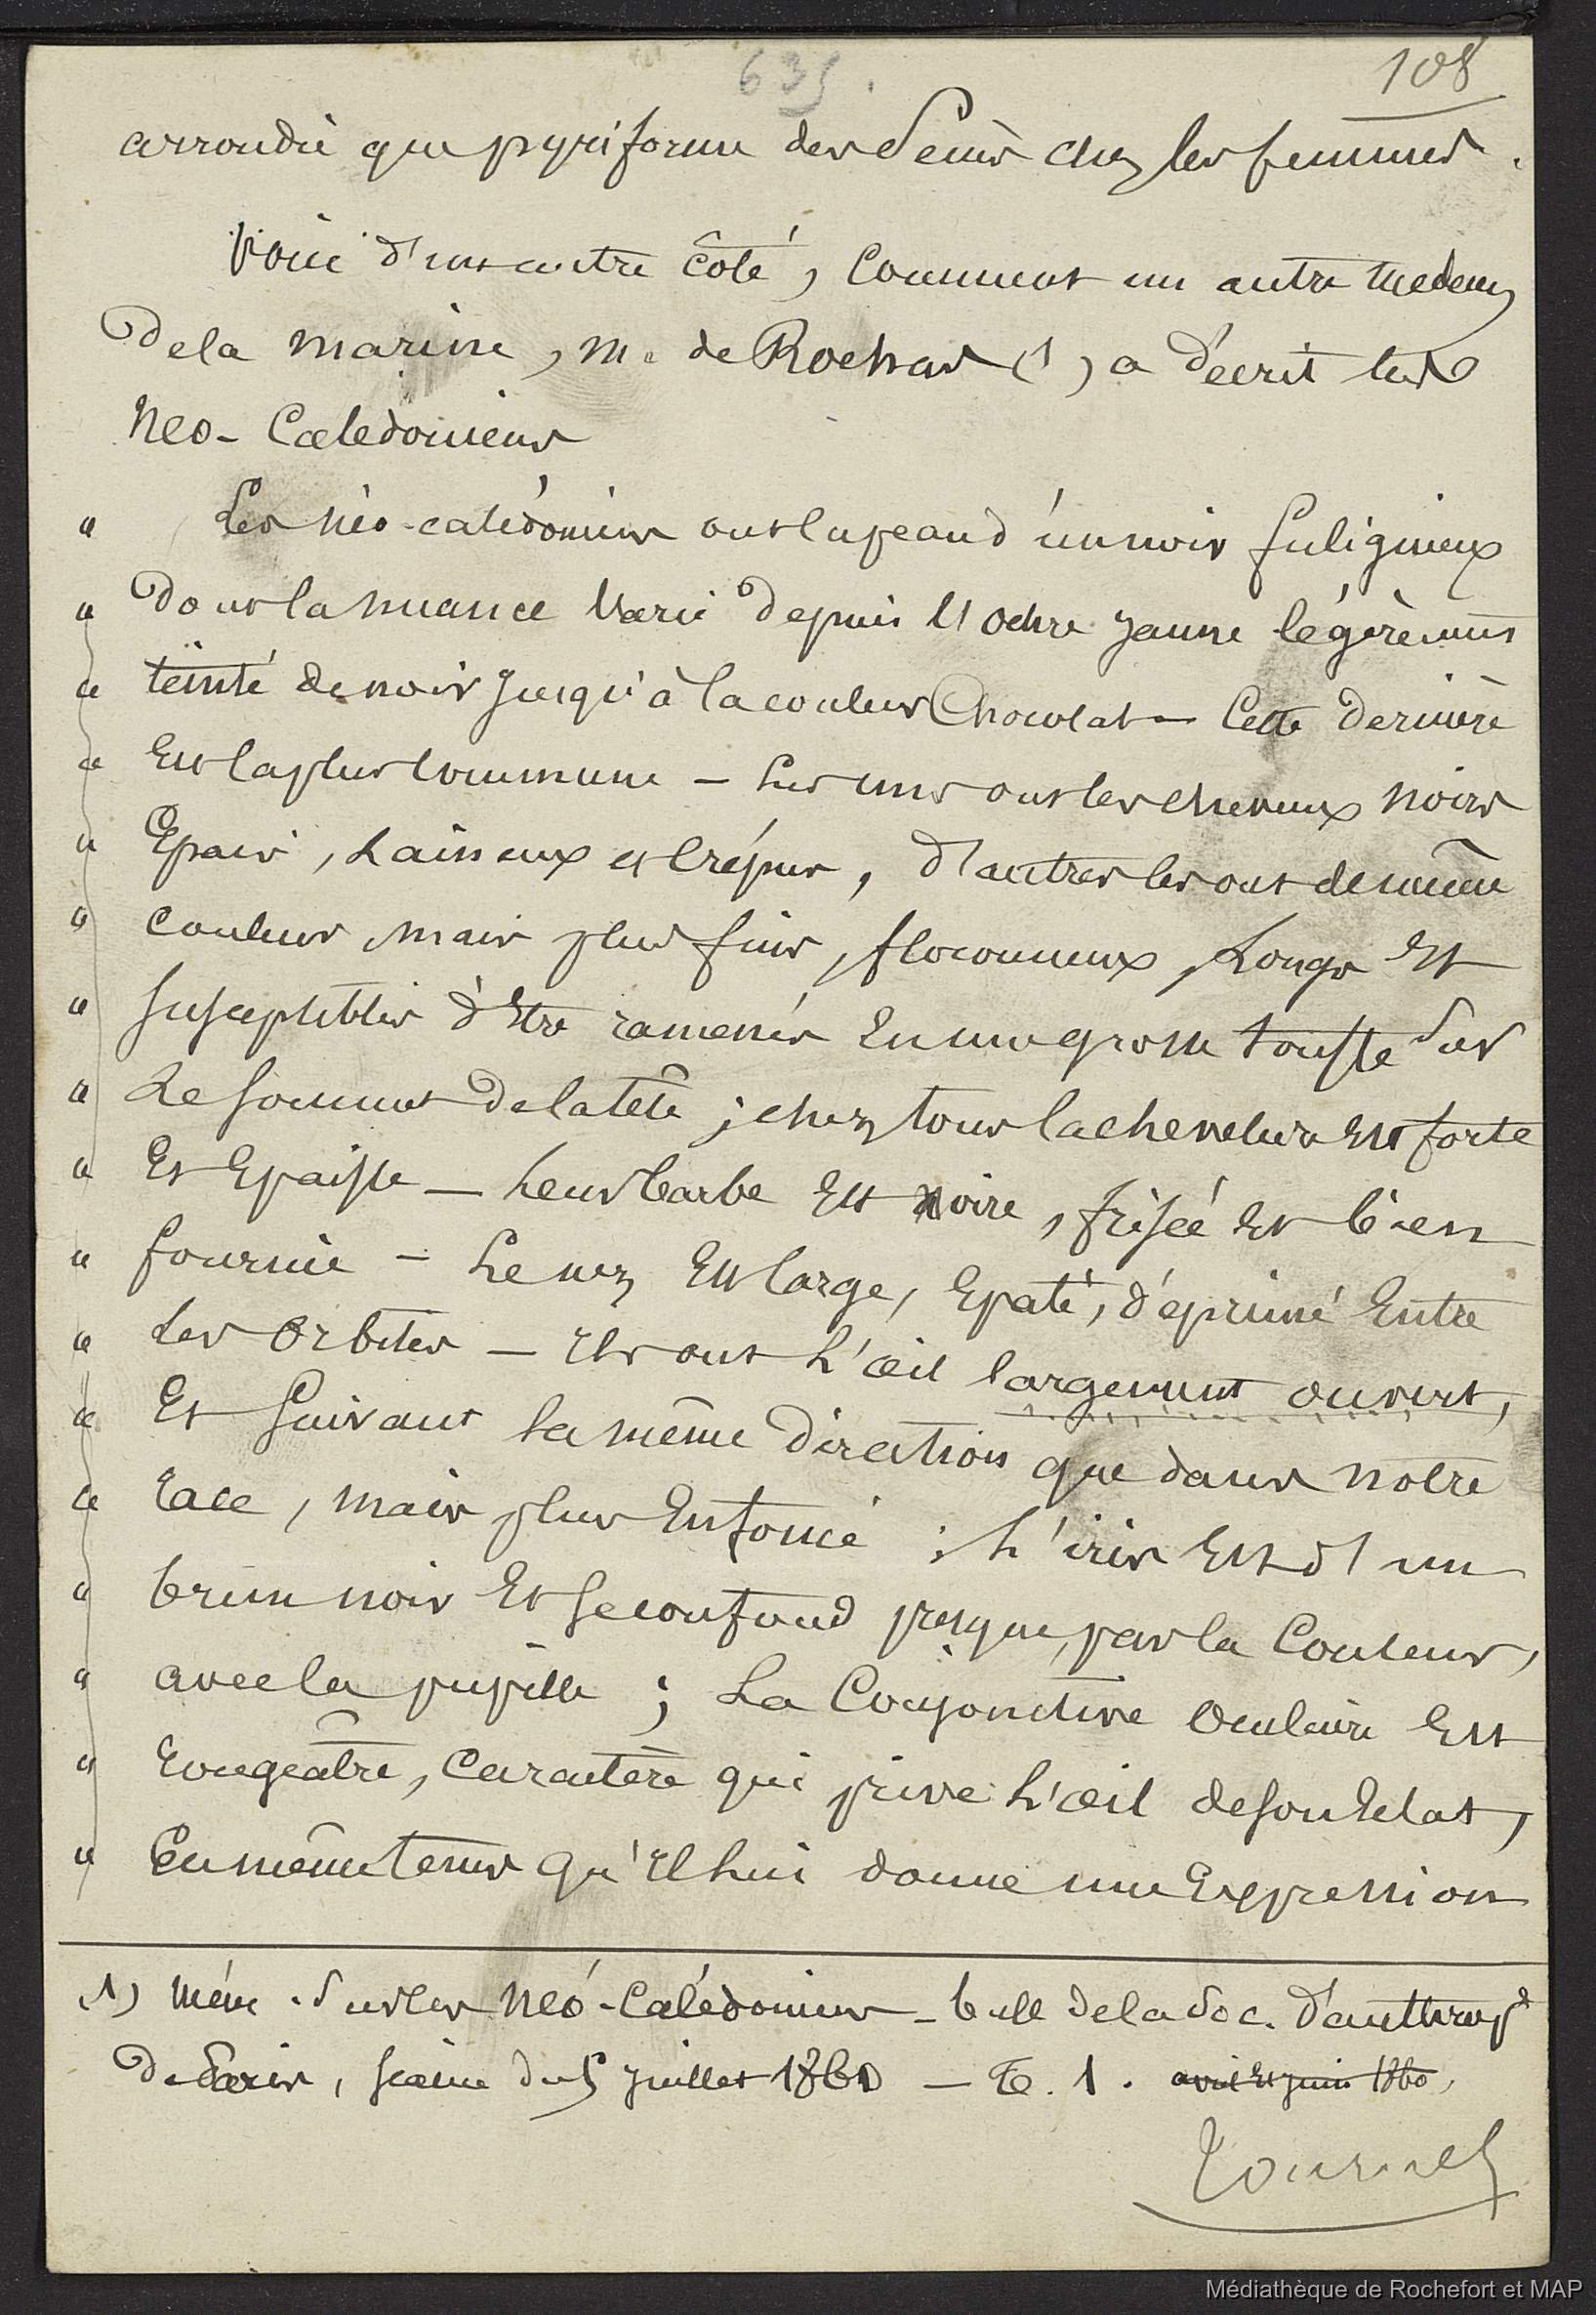 635.
108
arrondie que pyriforme des seins chez les femmes.
Voici d'un autre côté, Comment un autre medecin
De la marine, M. de Rochas (1) a décrit les
Neo-Caledoniens
" Les néo-calédoniens ont la peau d'un noir fuligineux
" Dont la nuance Varie Depuis l'ochre jaune légèrement
" teinté de noir jusqu'à la couleur Chocolat — Cette dernière
" Est la plus commune — Les uns ont les cheveux noirs
" Epais, Laineux et Crépus, d'autres les ont de même
" couleur, mais plus fins, floconneux, Longs Et
" susceptibles d'être ramenés En une grosse touffe sur
" Le sommet De la tête ; chez tous la chevelure Est forte
" Et Epaisse — Leur barbe Est noire, frisée Et bien
" fournie — Le nez Est large, Epaté, déprimé Entre
" Les Orbites — Ils ont L'œil largement ouvert,
" Et suivant la même direction que dans notre
" race, mais plus Enfoncé ; L'iris Est d'un
" brun noir Et se confond presque, par la Couleur,
" avec la pupille ; La Conjonctive Oculaire Est
" rougeâtre, Caractère qui prive L'œil de son Eclat,
" En même tems qu'Il lui donne une Expression
(1) Mém. sur les Néo-Calédoniens — bull de la Soc. d'anthrop
De Paris, séance du 5 Juillet 1860 — T. 1. avril et juin 1860,
Tournez
Médiathèque de Rochefort et MAP